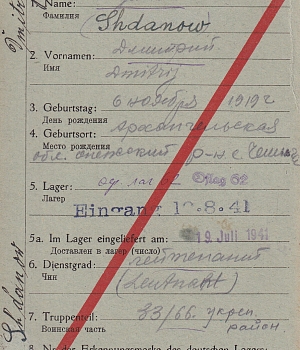 1. Name:
Фамилия
Shdanow
2. Vornamen: Дмитрий
Имя
Dmitrij
3. Geburtstag: 6 ноября 1919 г
День рождения
4. Geburtsort: Архангельская
Место рождения
обл. Онежский р-н с.
5. Lager: Oflag 62
Лагерь
Eingang 8.41
19. Juli 1941
5a. Im Lager eingeliefert am:
Доставлен в лагерь (число)
6. Dienstgrad: лейтенант
Чин
(Leutnant)
7. Truppenteil: 83/66. укреп.
Воинская часть район.
Shdanow